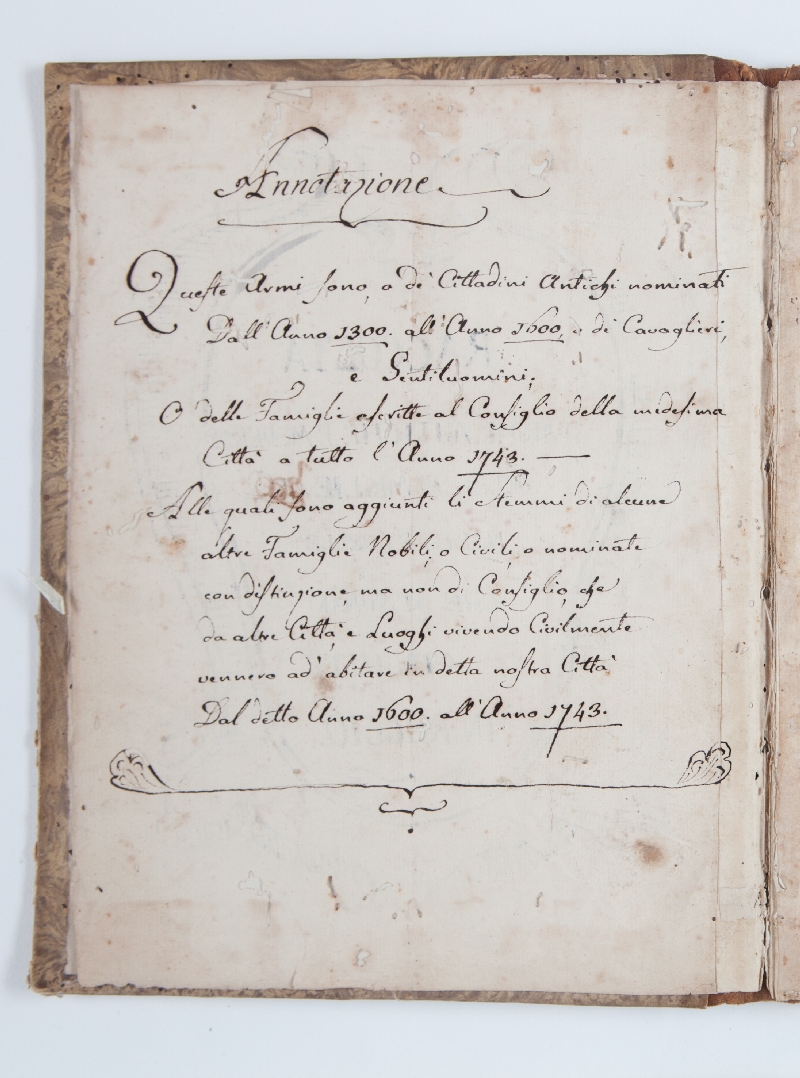 Annotazione
Queste Armi sono, o de' Cittadini Antichi nominati
Dall'Anno 1300. all'Anno 1600, o di Cavaglieri,
e Gentiluomini;
O' delle Famiglie ascritte al Consiglio della medesima
Città a tutto l'Anno 1743.
Alle quali sono aggiunti li Stemmi di alcune
altre Famiglie Nobili, o Civili, o nominate
con distinzione, ma non di Consiglio, che
da altre Città, e Luoghi vivendo Civilmente
vennero ad' abitare in detta nostra Città
Dal detto Anno 1600. all'Anno 1743.